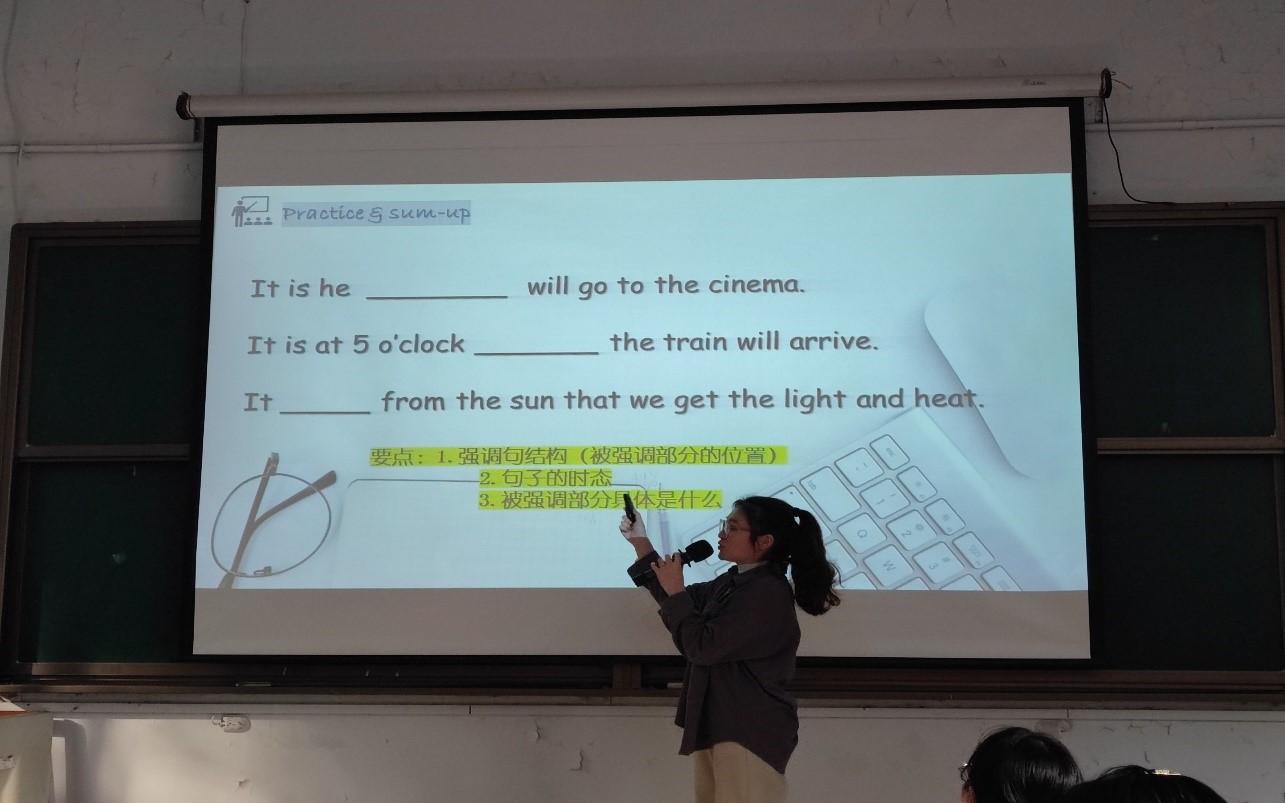 Practice & sum-up
It is he __________ will go to the cinema.
It is at 5 o'clock _________ the train will arrive.
It ______ from the sun that we get the light and heat.
要点：1. 强调句结构（被强调部分的位置）
2. 句子的时态
3. 被强调部分具体是什么